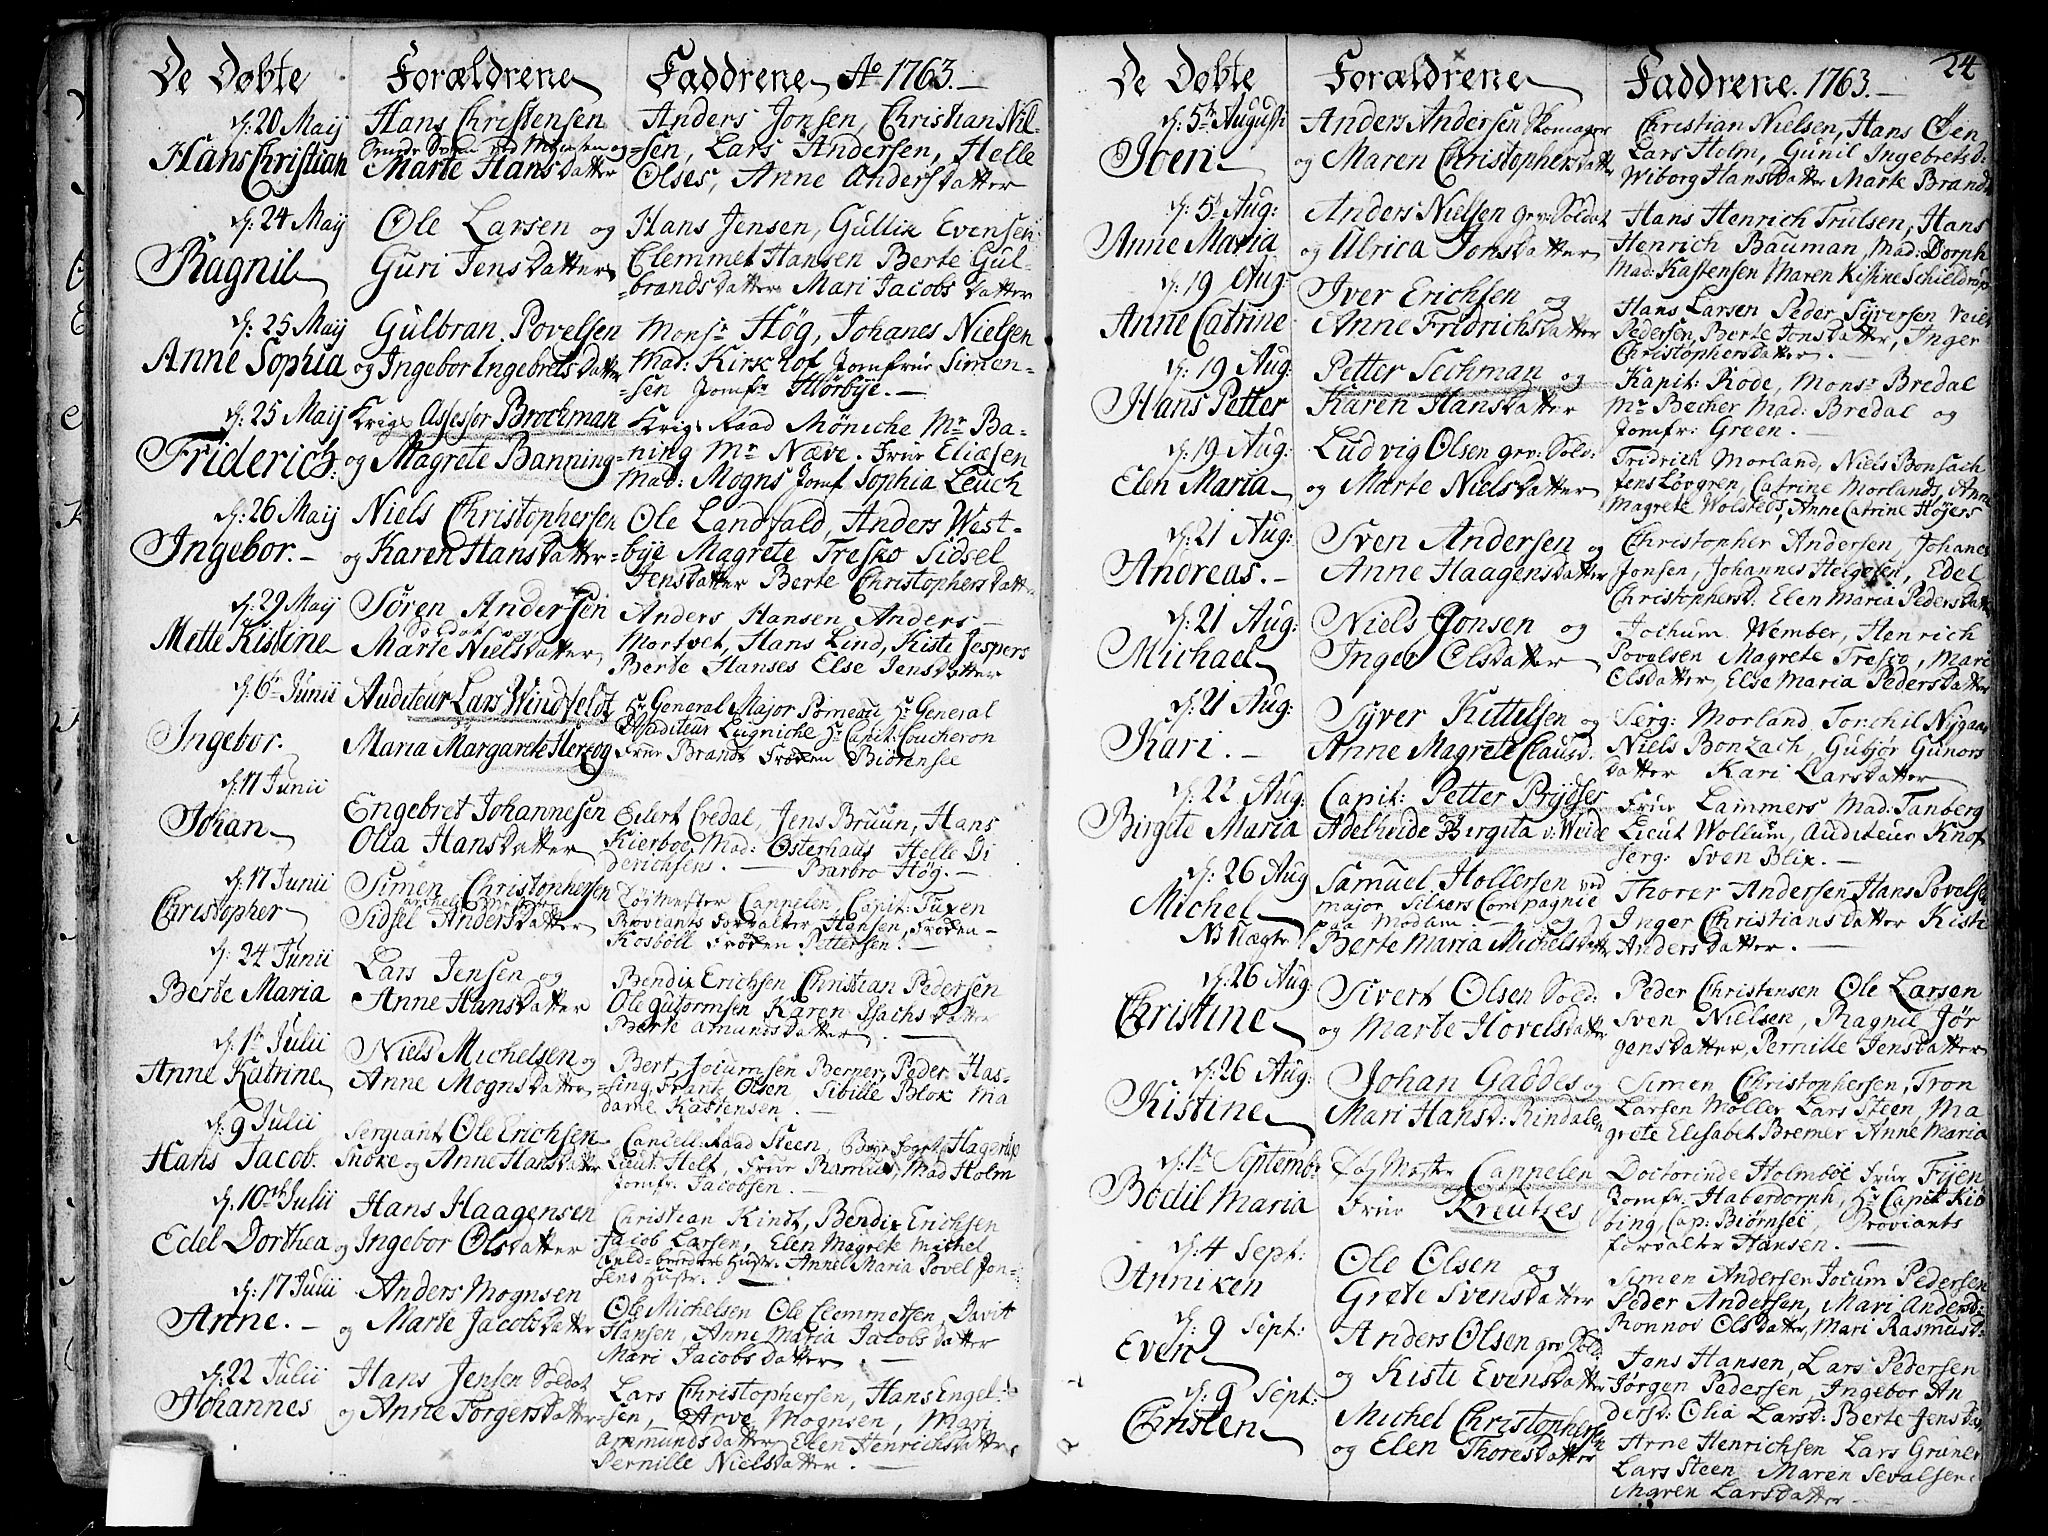 De Døbte Forældrene Faddrene Ao 1763.
d: 20 Maij
Hans Christian
Hans Christensen
Marte Hansdatter
Anders Jonsen, Christian Niel-
sen, Lars Andersen, Helle
Olses, Anne Andersdatter
d: 24 Maij
Ragnil
Ole Larsen og
Guri Jensdatter
Hans Jensen, Gullix Evensen
Clemmet Hansen Berte Gul-
brandsdatter Mari Jacobsdatter
d: 25 Maij
Anne Sophia
Gulbran Povelsen
og Ingebor Ingebretsdatter
Monsr Høg, Johanes Nielsen
Mad: Kirschof Jomfrue Simen-
sen Jomfr Hørbye.
d: 25 Maij
Friderich
Krigs Assessor Brochman
og Magrete Banning
Krigs Raad Møniche Mr Ba-
ning Mr Næve. Frue Eliæsen
Mad: Mogns Jomf Sophia Leuch
d: 26 Maij
Ingebor.
Niels Christophersen
og Karen Hansdatter
Ole Landfald, Anders West-
bye Magrete Tresko Sidsel
Jensdatter Berte Christophersdatt
d: 29 Maij
Mette Kistine
Søren Andersen
Soldat og
Marte Nielsdatter
Anders Hansen Anders
Mortvet, Hans Lind, Kisti Jespers
Berte Hanses Else Jensdatter
d: 6te Junii
Ingebor.
Auditeur Lars Windfeldt
Maria Margarete Herzog
Hr General Major Hr General
Auditeur Hr Capit: Coucheron
Frue Brandt Frøken Biørensee
d: 11 Junii
Johan
Engebret Johannesen
Olia Hansdatter
Eilert Credal, Jens Bruun, Hans
Kierboe, Mad: Osterhaus Helle Di
derichsens. Barbro Høg.
d: 17 Junii
Christopher
Simen Christophersen
Sidsel Andersdatter
Cappelen, Capit: Tuxen
Proviants Forvalter Hansen, Frøken
Kosbøll Frøken Pettersen.
d: 24 Junii
Berte Maria
Lars Jensen og
Anne Hansdatter
Bendix Erichsen Christian Pedersen
Ole Gutormsen Karen Isachsdatter
Berte Amundsdatter
d: 1te Julii
Anne Katrine
Niels Michelsen og
Anne Mognsdatter
Bert Jocumsen Berner, Peder Has-
sing, Frantz Olsen Sibille Blok Ma
dame Kastensen.
d: 9 Julii
Hans Jacob.
Sergiant Ole Erichsen
Snoke og Anne Hansdatter
Cancell: Raad Steen, Bye Fogt Hagerup
Lieut: Helt, Frue Rasmus, Mad Holm
Jomfr: Jacobsen.
d: 10de Julii
Edel Dorthea
Hans Haagensen
og Ingebor Olsdatter
Christian Kindt, Bendix Erichsen
Jacob Larsen, Elen Magrete Michel
berederes Hustr. Anne Maria Povel Jon-
sens Hustr.
d: 17 Julii
Anne.
Anders Mognsen
og Marte Jacobsdatter
Ole Michelsen Ole Clemmetsen, Davit
Hansen, Anne Maria Jacobsdatter
Mari Jacobsdatter.
d: 22 Julii
Johannes
Hans Jensen Soldat
og Anne Torgersdatter
Lars Christophersen, Hans Engel-
sen, Arve Mognsen, Mari
Ammundsdatter Elen Henrichsdatter
Pernille Nielsdatter.
24
De Døbte Forældrene Faddrene. 1763.
d: 5te Augusti
Iver
Anders Andersen Skomager
og Maren Christophersdatter
Christian Nielsen, Hans Øen
Lars Holm, Gunil Ingebretsd:
Wiborg Hansdatter Marte Brandt
d: 5te Aug:
Anne Maria
Anders Nielsen gev: Soldat
og Ulrica Jonsdatter
Hans Henrich Trulsen, Hans
Henrich Bauman, Mad: Dorph
Mad: Kastensen Maren Kistine Schieldrop
d: 19 Aug:
Anne Catrine
Iver Erichsen og
Anne Fridrichsdatter
Hans Larsen Peder Syversen
Pedersen, Berte Jonsdatter, Inger
Christophersdatter.
d: 19 Aug:
Hans Petter
Petter Sechman og
Karen Hansdatter
Kapit: Rode, Monsr Bredal
Mr Becher Mad: Bredal og
Jomfr: Green.
d: 19 Aug:
Elen Maria
Ludvig Olsen gev: Sold:
og Marte Nielsdatter
Fridrich Morland, Niels Bonsach
Jens Løvgren, Catrine Morlands, Anne
Magrete Wolsteds, Anne Catrine Høyers
d: 21 Aug:
Andreas.
Sven Andersen og
Anne Haagensdatter
Christopher Andersen, Johanes
Jonsen, Johannes Helgesen, Edel
Christophersd: Elen Maria Pedersdatt
d: 21 Aug:
Michael
Niels Jonsen og
Inger Olsdatter
Jochum Wember, Henrich
Povelsen Magrete Tresko, Mari
Olsdatter, Else Maria Pedersdatter
d: 21 Aug:
Kari.
Syver Kittelsen og
Anne Magrete Clausd.
Serg: Morland Torchil Nygaar
Niels Bonzach, Gubjør Gunors
datter Kari Larsdatter
d: 22 Aug:
Birgite Maria
Capit: Petter Prydser
Adelheide Birgita v: Weide
Frue Lammers Mad: Tanberg
Lieut Wollum, Auditeur Knof
Serg: Sven Blix.
d: 26 Aug
Michel
NB Uægte
Samuel Hollersen ved
major Silkers Compagnie
paa Modum. og
Berte Maria Michelsdatt
Thorer Andersen Hans Povelsen
Inger Christiansdatter Kisti
Andersdatter.
d: 26 Aug:
Christine
Sivert Olsen Sold:
og Marte Hovelsdatter
Peder Christensen Ole Larsen
Sven Nielsen, Ragnil Jør
gensdatter, Pernille Jensdatter
d: 26 Aug:
Kistine
Johan Gaddes og
Mari Hansd: Rindalen
Simen Christophersen, Tron
Larsen Møller Lars Steen, Ma
grete Elisabet Bremer Anne Maria
d: 1te Septembr
Bodil Maria
Cappelen
Frue Kreutzes
Doctorinde Holmboe Frue Fyen
Jomfr: Haberdorph, Hr Capit Kib
bing, Cap: Biørnsee, Proviants
forvalter Hansen.
d: 4 Sept:
Anniken
Ole Olsen og
Grete Svensdatter
Simen Andersen Jocum Pedersen
Peder Andersen, Mari Andersd:
Ronnov Olsdatter, Mari Rasmusd:
d: 9 Sept:
Even
Anders Olsen gev Sold:
og Kisti Evensdatter
Jans Hansen, Lars Pedersen
Jørgen Pedersen, Ingebor An
dersd: Olia Larsd: Berte Jensdat
d: 9 Sept:
Christen
Michel Christophersen
og Elen Thoresdatter
Arne Henrichsen Lars Gruner
Lars Steen Maren Sevalsen
Maren Larsdatter